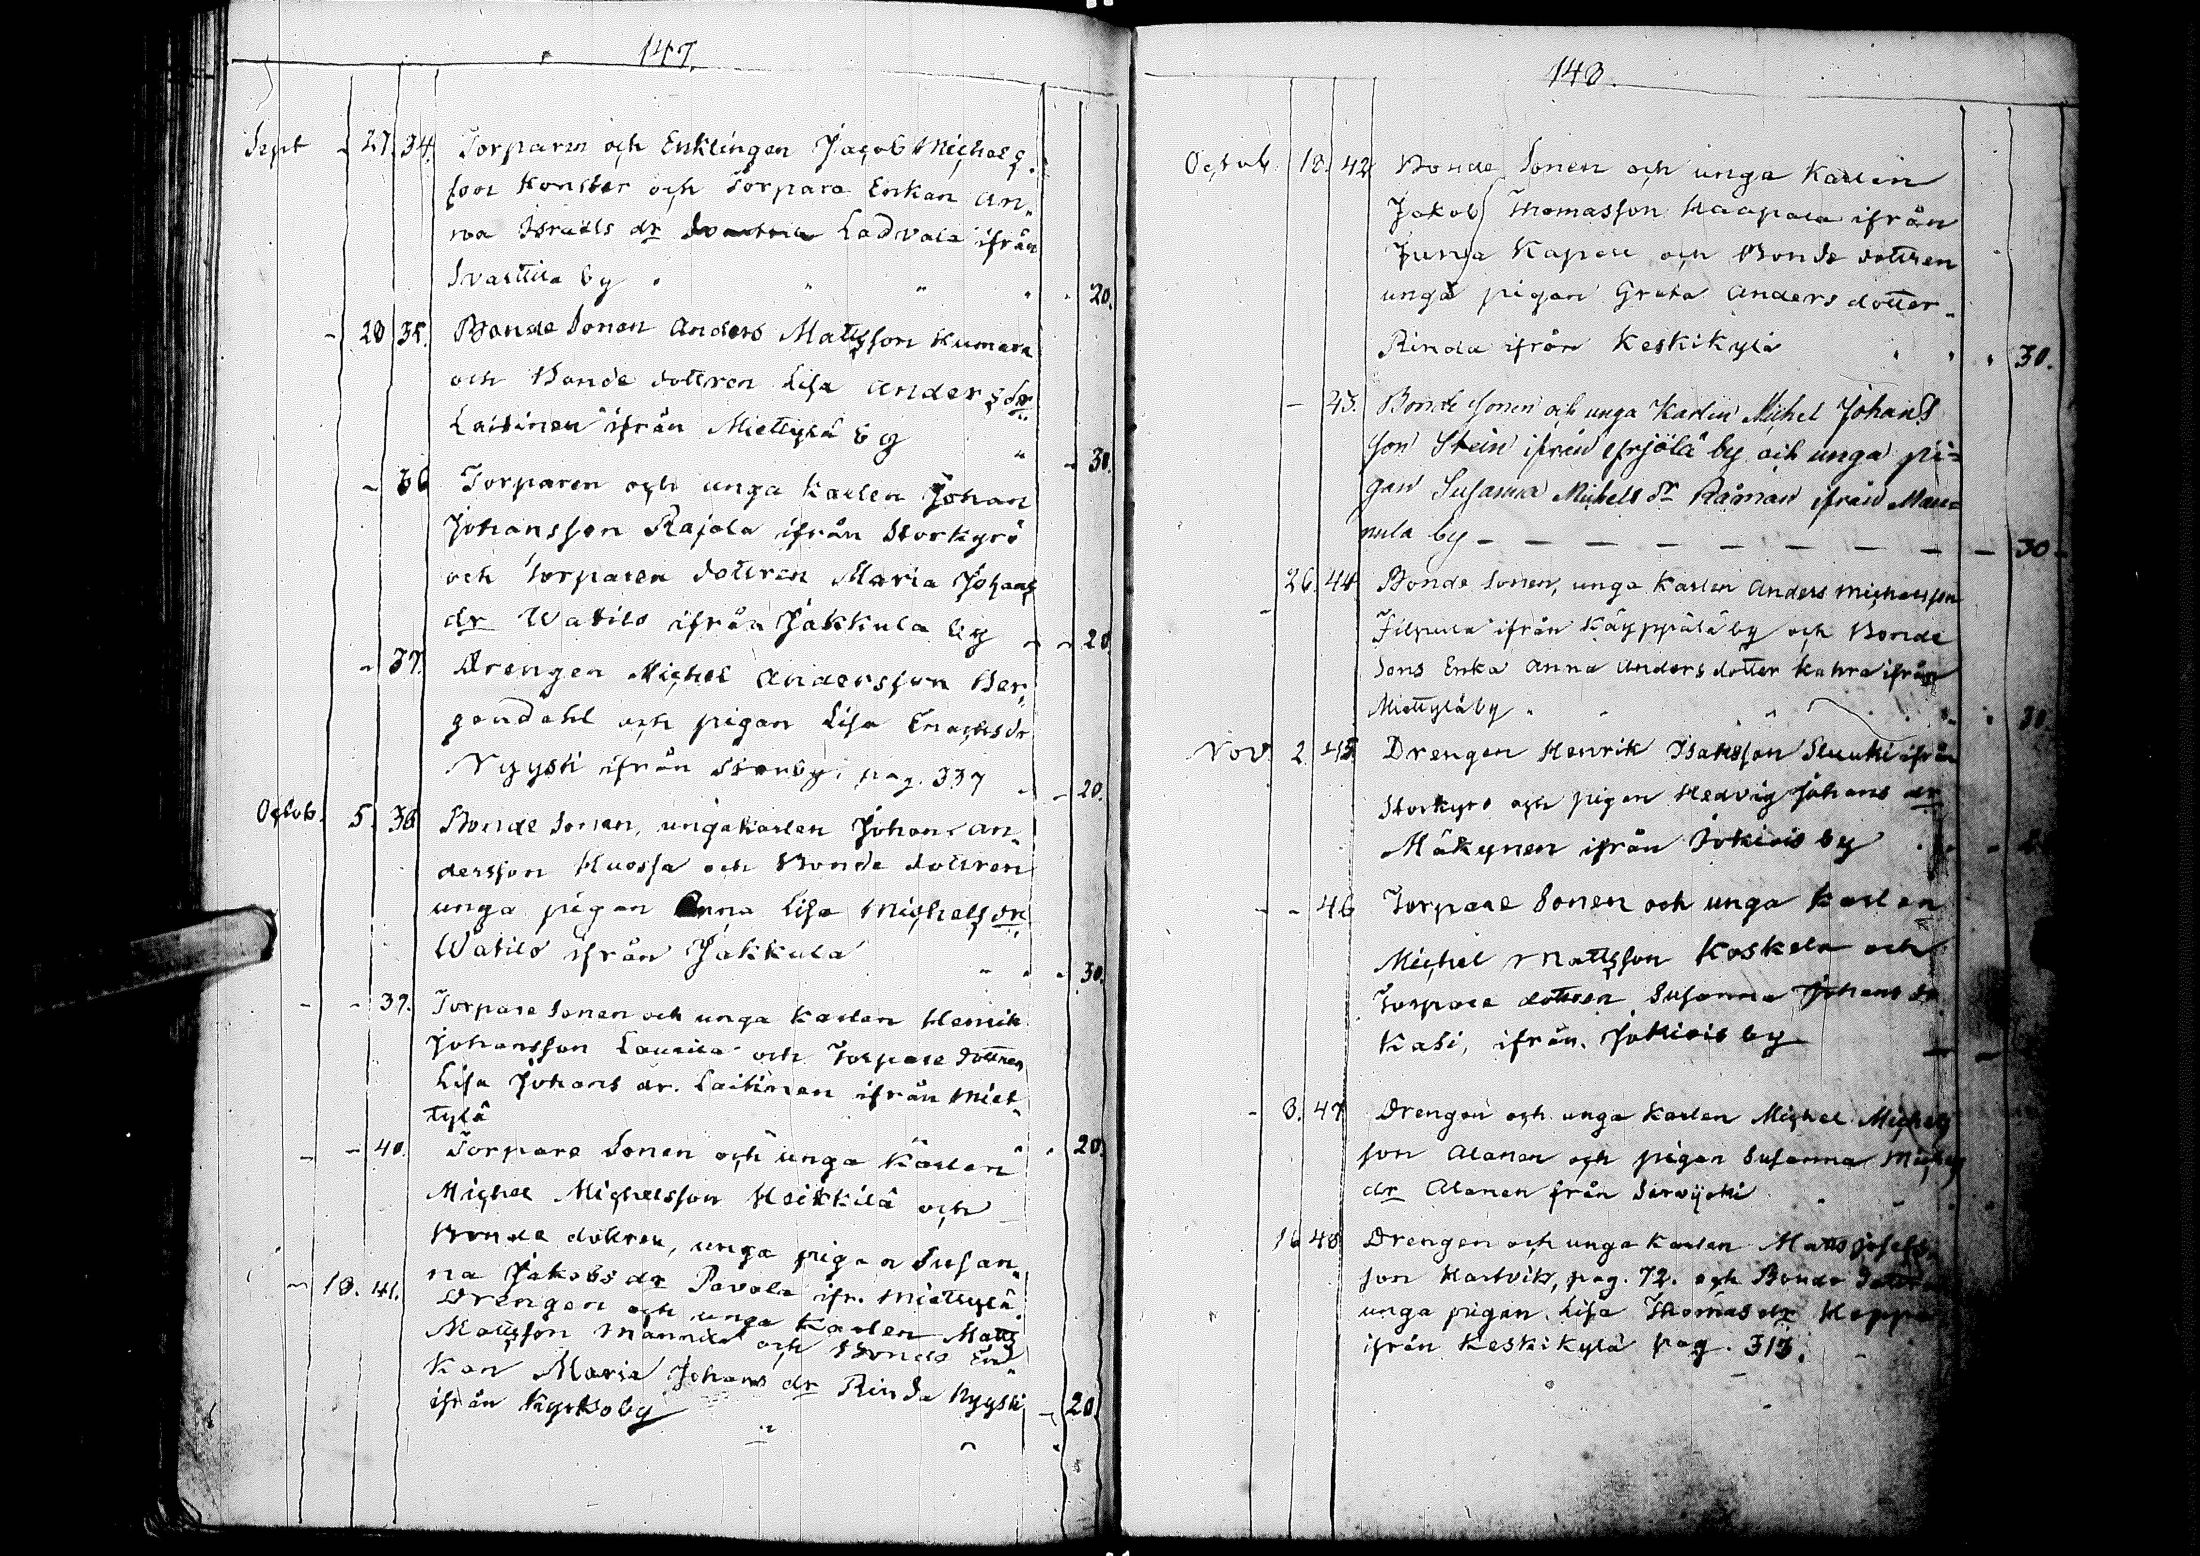 147.
Sept - 27. 34. Torparen och Enklingen Jacob Michels
son Konster och Torpare Enkan An„
na Israels dr Ladvala ifrån
Svarttila by " " " 20.
- 28 35. Bonde Sonen Anders Mattsson Kumara
och Bonde dottren Lisa Anders dr
Laitinen ifrån Miettylä by " - 30.
- 36 Torparen och unga Karlen Johan
Johansson Rajala ifrån Storkyrö
och Torparen dottren Maria Johans
dr Watilo ifrån Jakkula by - - 20
- 37. Drengen Michel Andersson Ber„
gendahl och pigan Lisa Enachsdr
Nyysti ifrån Storby. pag. 337 - - 20.
Octob. 5. 38 Bonde Sonen, unga karlen Johan An„
dersson Huossa och Bonde dottren
unga pigan Anna Lisa Michels dr.
Watilo ifrån Jakkula " " 30.
- - 39. Torpare Sonen och unga Karlen Henrik
Johansson Laurila och Torpare dottren
Lisa Johans dr. Laitinen ifrån Miet„
tylä " 20.
- - 40. Torpare Sonen och unga Karlen
Michel Michelsson Heikkilä och
Bonde dottren, unga pigan Susan„
na Jakobs dr Pavola ifr. Miettylä
- 18. 41. Drengen och unga Karlen Matts
Mattsson Mannila och Bonde En„
kan Maria Johans dr Rinda Nyysti
ifrån Kyrkoby " - 20
148.
Octob. 18. 42 Bonde Sonen och unga Karlen
Jakob Thomasson Haapala ifrån
Junga Kapell och Bonde dottren
unga pigan Greta Anders dotter„
Rinda ifrån Keskikylä " " " 30.
- 43. Bonde sonen och unga Karlen Michel Johans
son Stein ifrån by och unga pi=
gan Susanna Michels dr Råman ifrån Man=
nula by - - - - - - - - - 30 -
- 26. 44 Bonde Sonen, unga Karlen Anders Michelsson
Filpula ifrån Käyppälä by och Bonde
Sons Enka Anna Anders dotter Kahra ifrån
Miettylä by " " " 30.
Nov. 2. 45 Drengen Henrik Isaksson ifrån
Storkyro och pigan Hedvig Johans dr
Mäkynen ifrån Jokiois by
- - 46 Torpare Sonen och unga Karlen
Michel Mattsson Koskela och
Torpare dottren Susanna Johans dr
Kasi, ifrån. Jokiois by
- 3. 47 Drengen och unga Karlen Michel Michels
son Alanen och pigan Susanna Michels
dr Alanen från Jervijoki
16 48 Drengen och unga Karlen Matts Josefs
son Hartvik, pag. 72. och Bonde dottren
unga pigan Lisa Thomas dr
ifrån Keskikylä pag. 313.